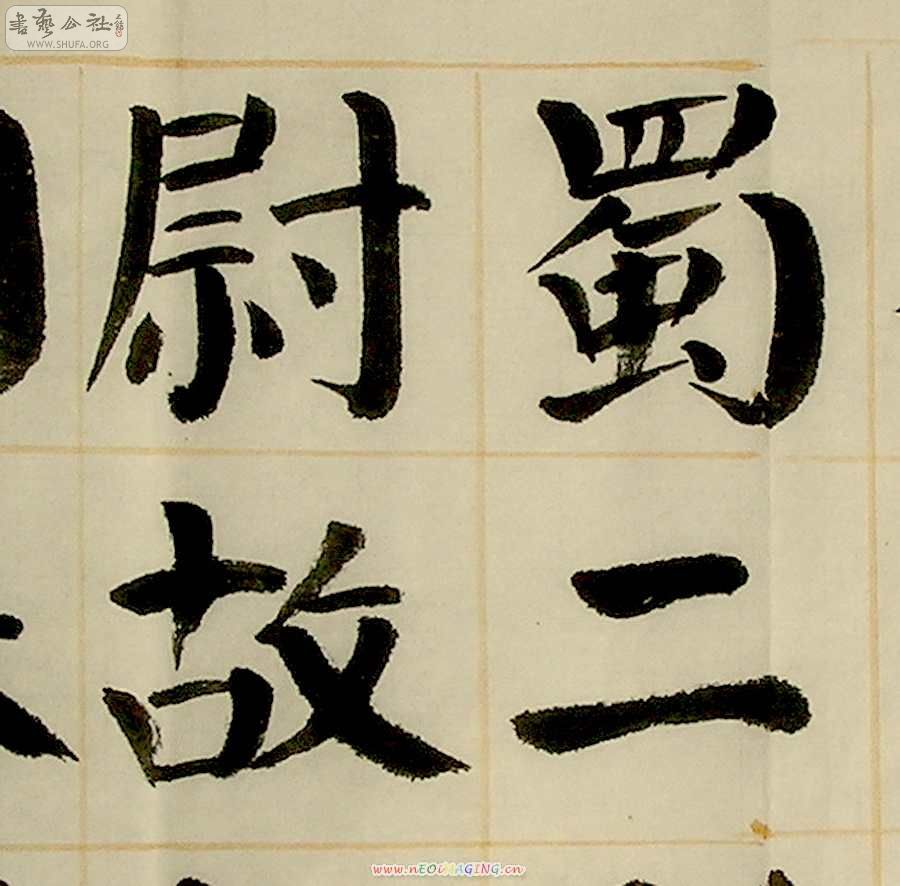 蜀二
尉故
書藝公社
WWW.SHUFA.ORG
www.nEOiMAGING.cn